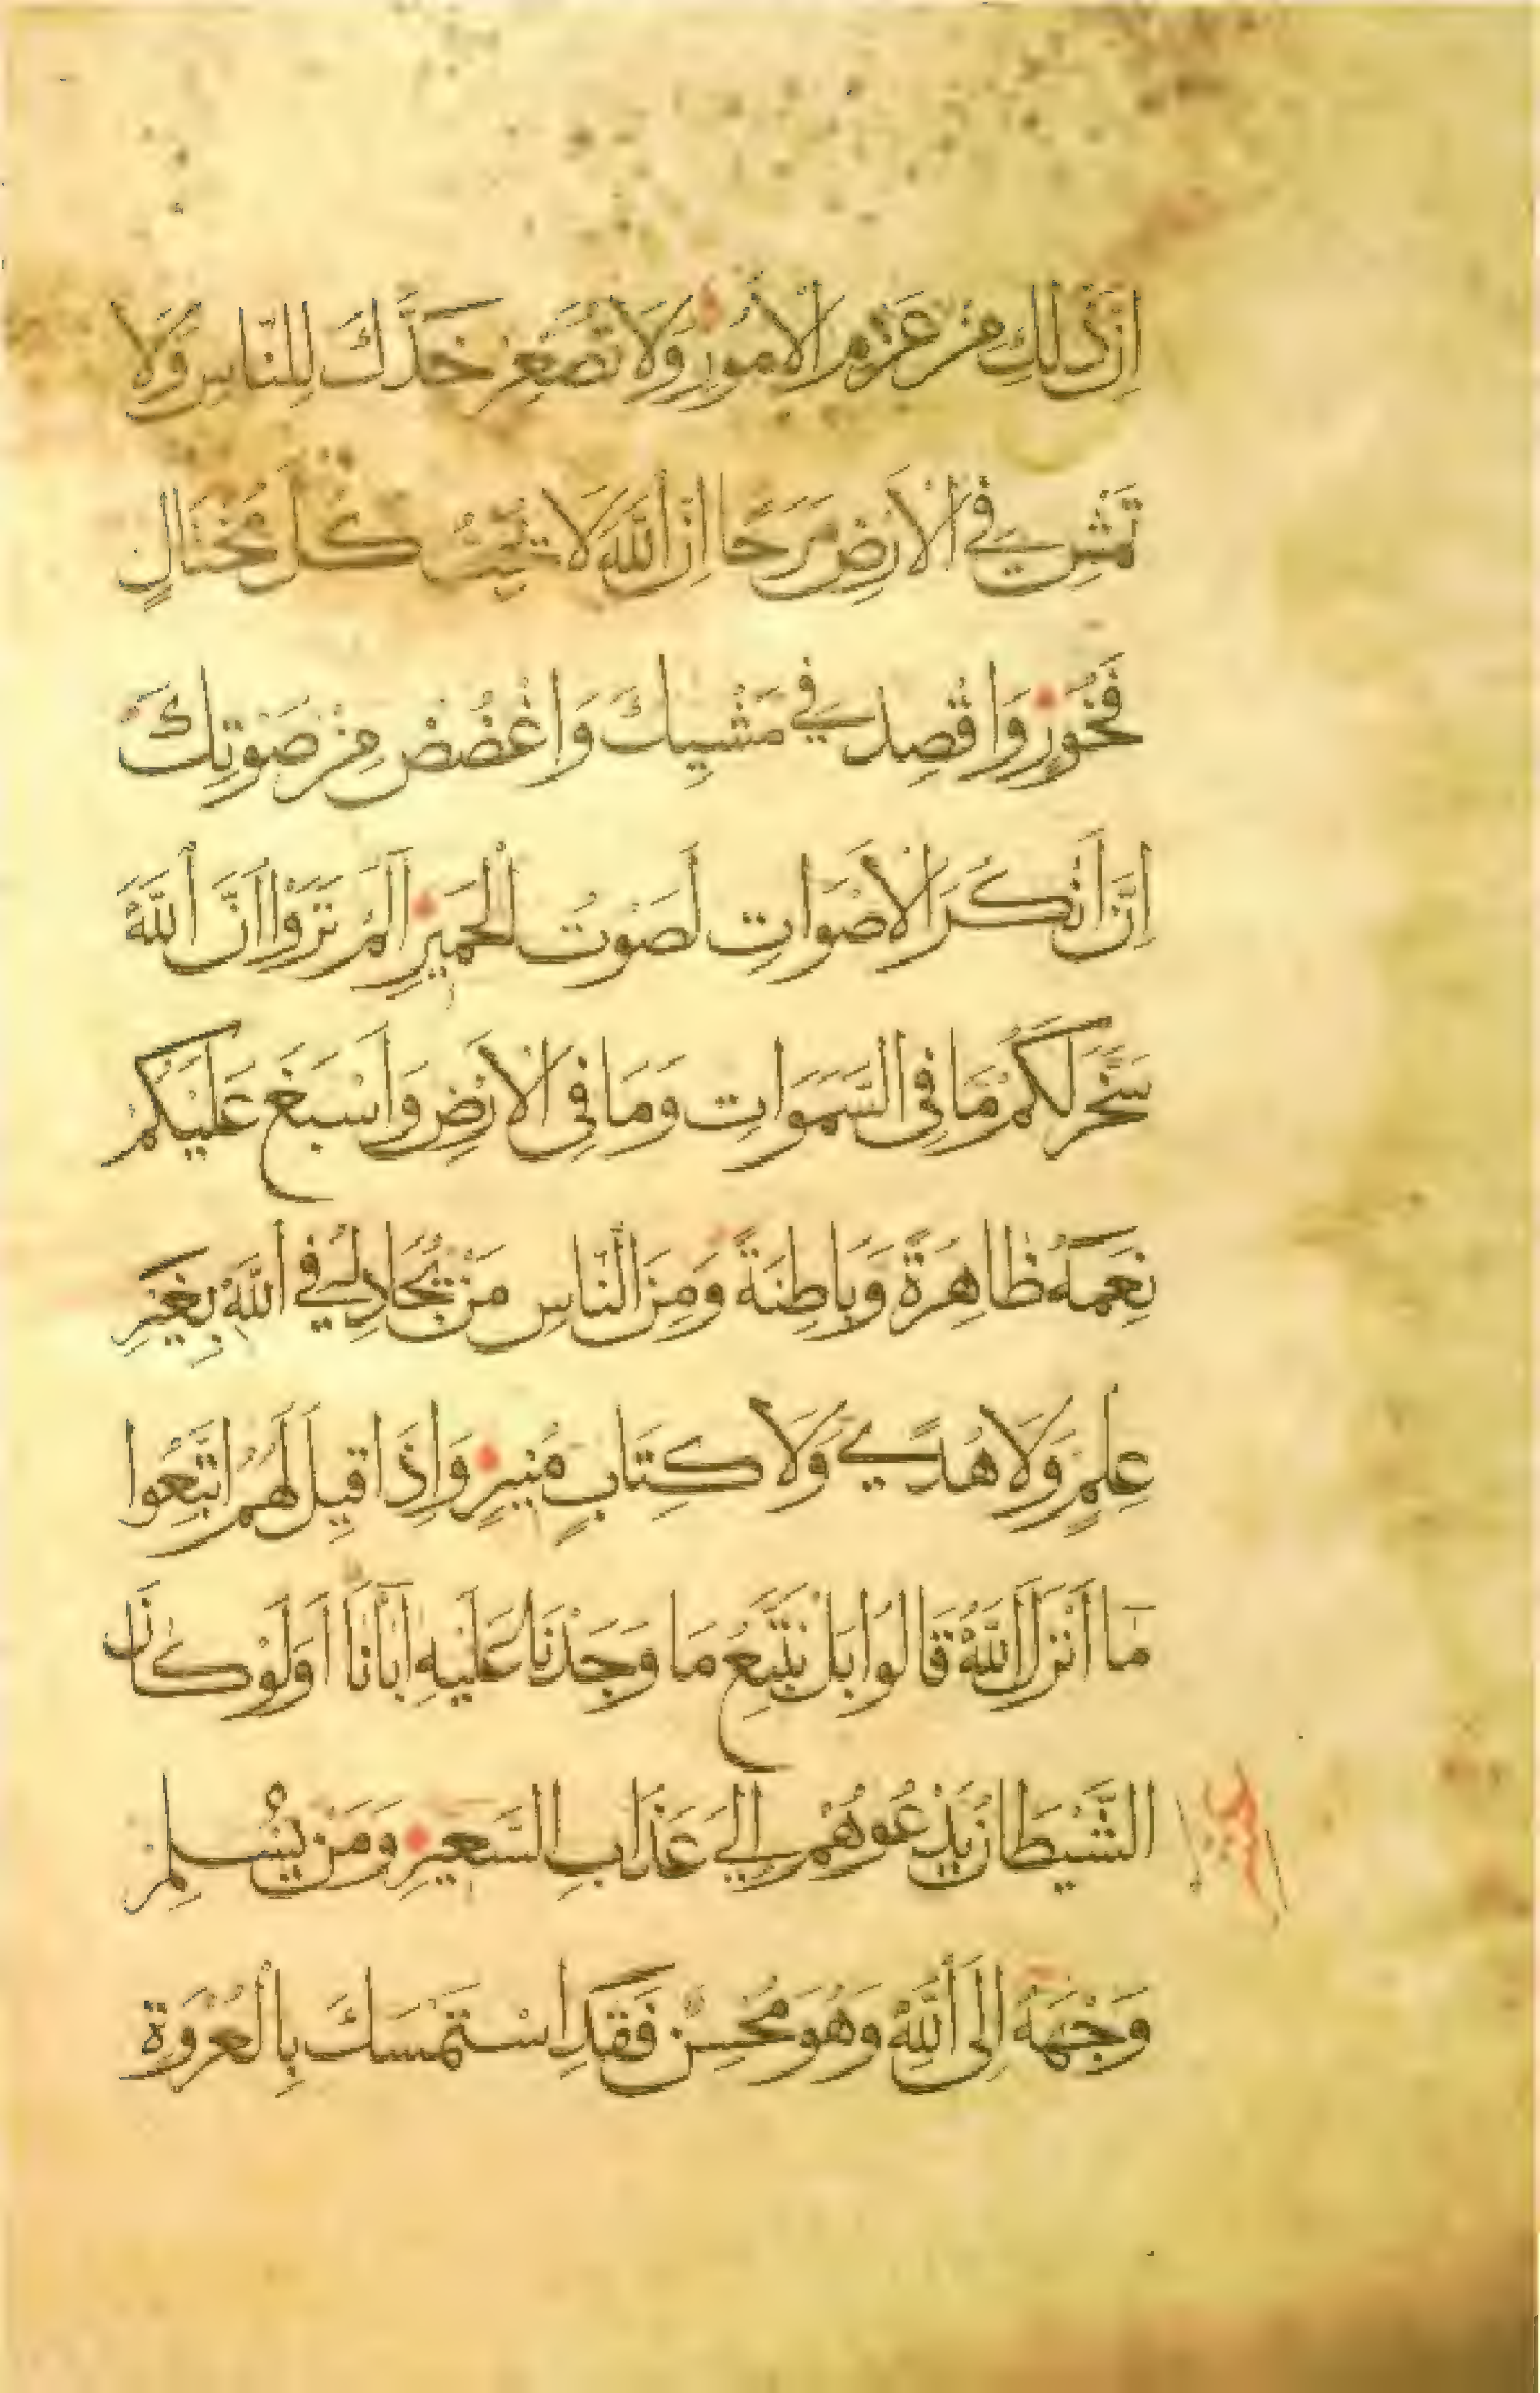 اِنَّ ذٰلِكَ مِنْ عَزْمِ الْاُمُورِ وَلَا تُصَعِّرْ خَدَّكَ لِلنَّاسِ وَلَا
تَمْشِ فِي الْاَرْضِ مَرَحًا اِنَّ اللّٰهَ لَا يُحِبُّ كُلَّ مُخْتَالٍ
فَخُورٍ وَاقْصِدْ فِي مَشْيِكَ وَاغْضُضْ مِنْ صَوْتِكَ
اِنَّ اَنْكَرَ الْاَصْوَاتِ لَصَوْتُ الْحَمِيرِ اَلَمْ تَرَوْا اَنَّ اللّٰهَ
سَخَّرَ لَكُمْ مَا فِي السَّمَوَاتِ وَمَا فِي الْاَرْضِ وَاَسْبَغَ عَلَيْكُمْ
نِعَمَهُ ظَاهِرَةً وَبَاطِنَةً وَمِنَ النَّاسِ مَنْ يُجَادِلُ فِي اللّٰهِ بِغَيْرِ
عِلْمٍ وَلَا هُدًي وَلَا كِتَابٍ مُنِيرٍ وَاِذَا قِيلَ لَهُمُ اتَّبِعُوا
مَا اَنْزَلَ اللّٰهُ قَالُوا بَلْ نَتَّبِعُ مَا وَجَدْنَا عَلَيْهِ اٰبَاءَنَا اَوَلَوْ كَانَ
الشَّيْطَانُ يَدْعُوهُمْ اِلَي عَذَابِ السَّعِيرِ وَمَنْ يُسْلِمْ
وَجْهَهُ اِلَى اللّٰهِ وَهُوَ مُحْسِنٌ فَقَدِ اسْتَمْسَكَ بِالْعُرْوَةِ